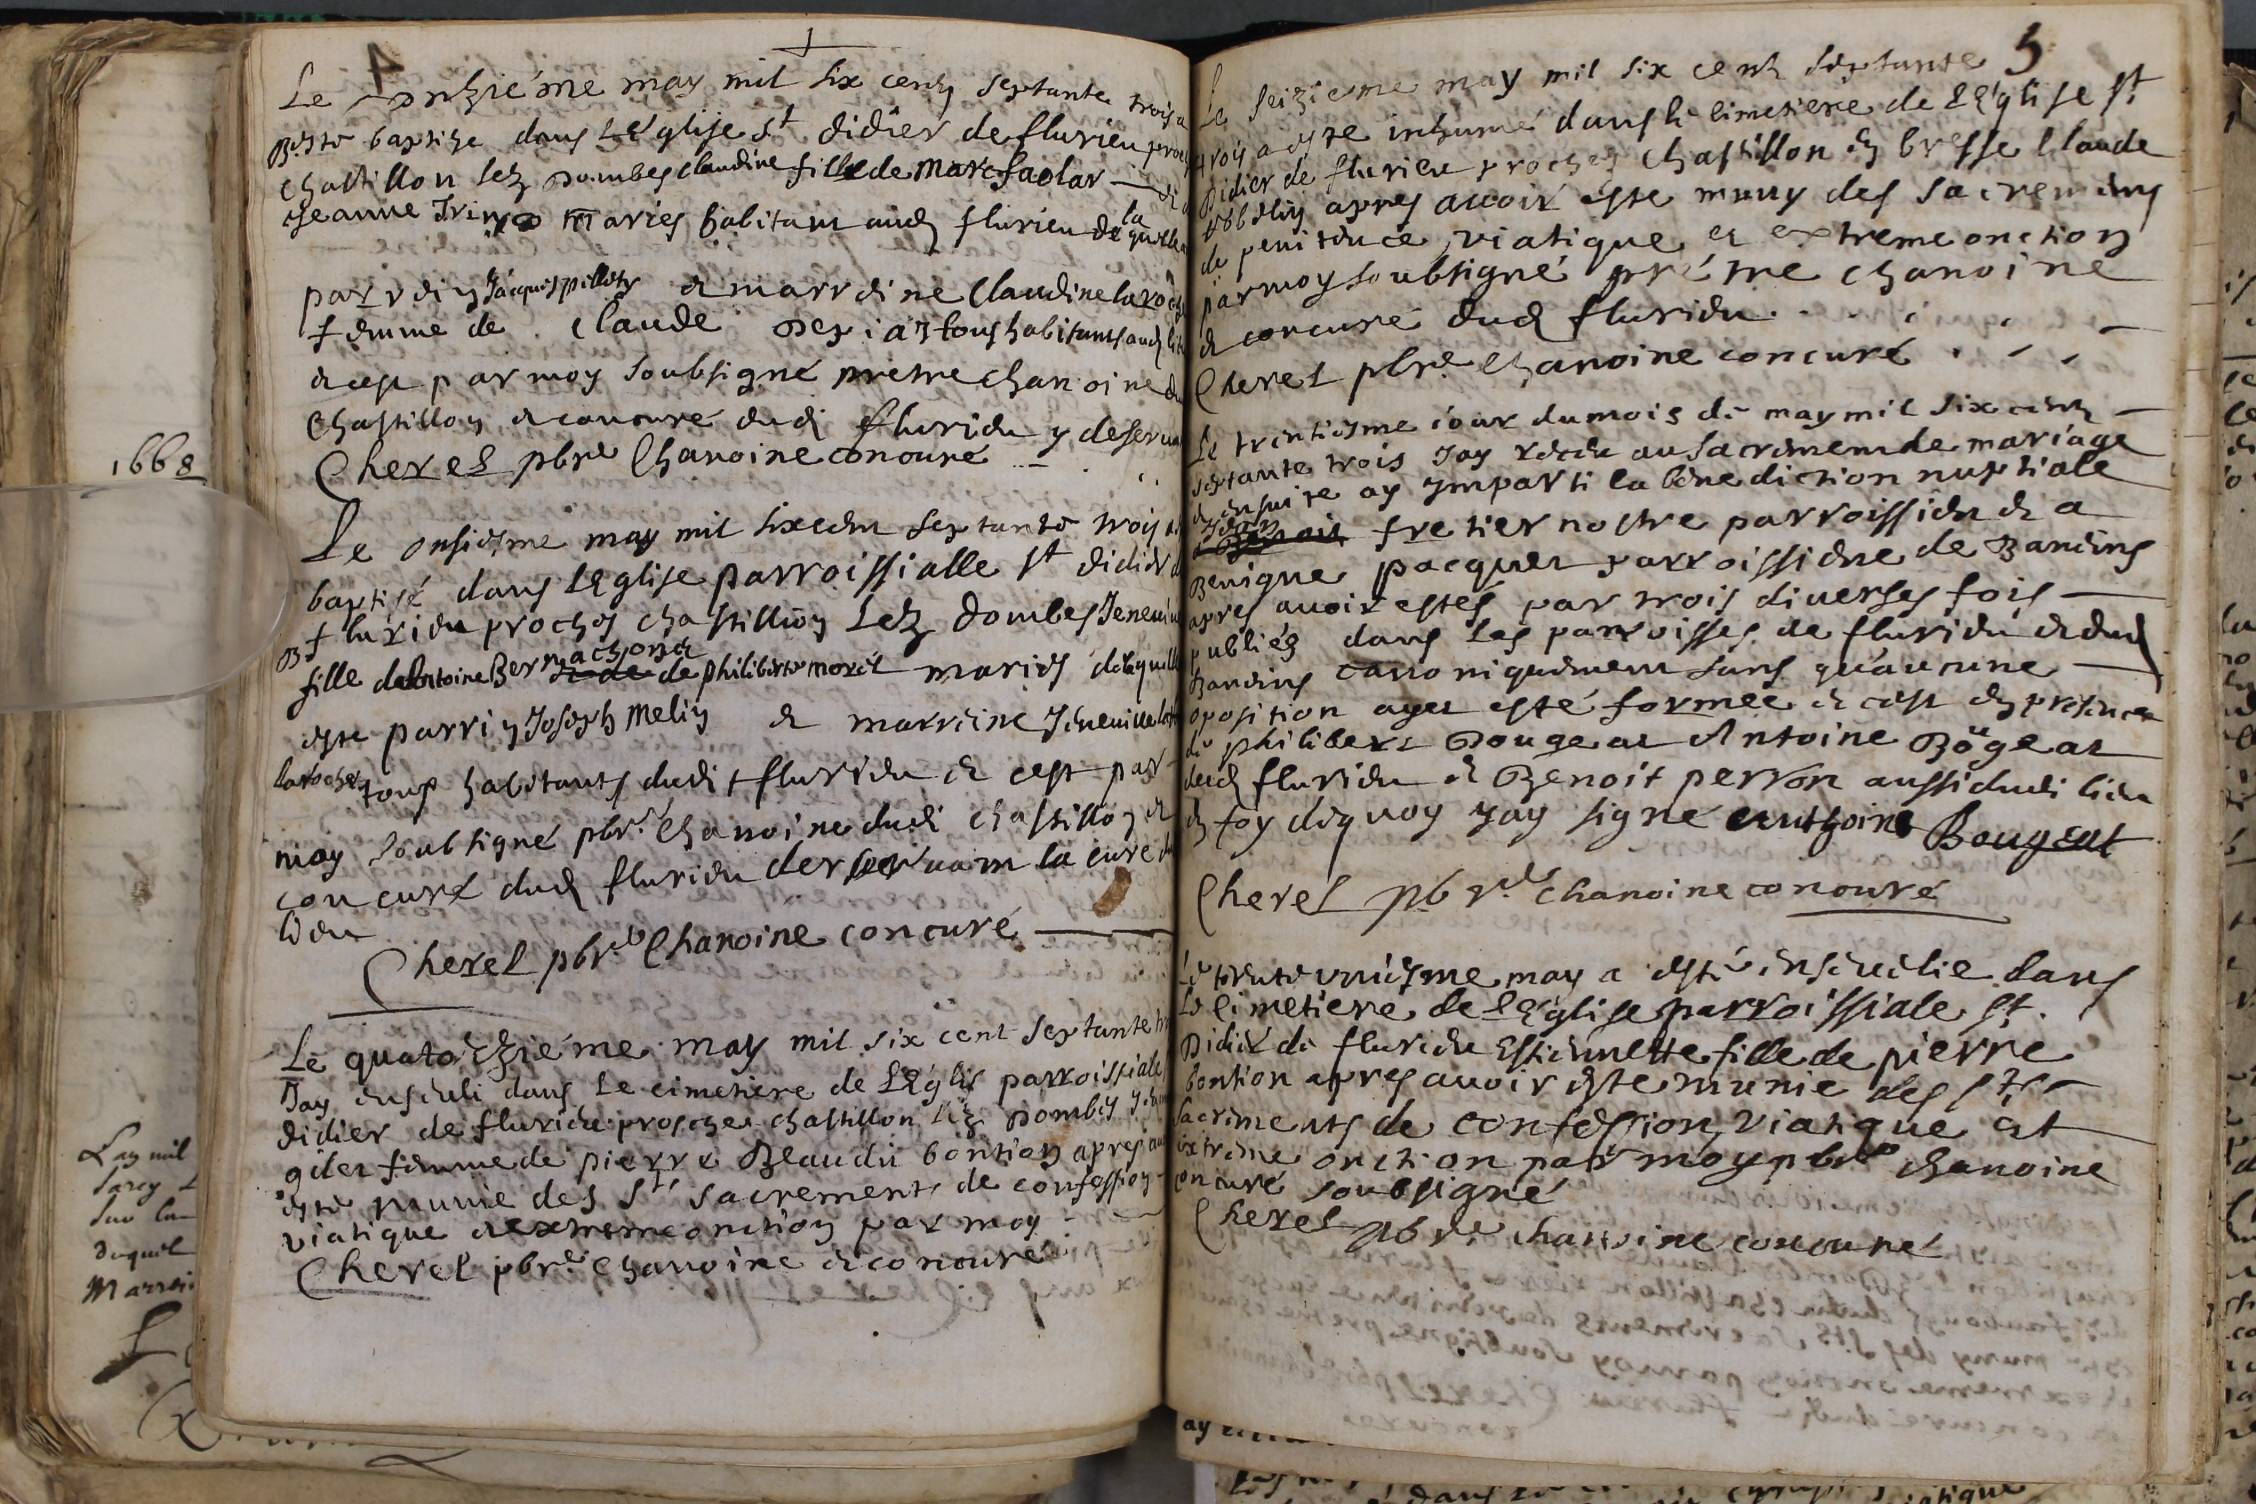 1668
Lay mil
Sur la
duquel
Marrei
4
Le onziéme may mil six centz septante trois a
B esté baptize dans LEglise St didier de flurieu proch
Chastillon lez Dombes Claudine fille de Marc faolar — &
Jeanne Trin maries habitans aud flurieu de la quelle
parrein Jacques pillety & marreine Claudine laroch
femme de Claude Depias tous habitants aud lieu
& cest par moy soubsigné pretre chanoine du
Chastillon & concuré dudi flurieu y deserua
Cherel pbre Chanoine concuré
Le onsiesme may mil six cent septante trois a
baptisé dans LEglise parroissialle St didier d
B flurieu proches chastillon Lez Dombes Jeneui
fille de Antoine Bernachon & de philiberte morel mariés delaquelle
este parrin Joseph Meliy & marreine Jeneuieue
laroche tous habitants dudit flurieu & cest par
moy soubsigné pbre Chanoine dudi chastillon &
concuré dud flurieu der seruant la cure du
lieu
Cherel pbre Chanoine concuré
Le quatorziéme may mil six cent septante tr
Jay enseueli dans le cimetiere de LEglis parroissiale
didier de flurieu prosche chastillon lez Dombes
femme de pierre Beaudu bontion apres au
esté munie des Sts sacrements de confession
viatique & extreme onction par moy
Cherel pbre Chanoine & concuré
5
Le seiziéme may mil six centz septante
trois a este inhumé dans le cimetiere de LEglise St
Didier de flurieu proches Chastillon en bresse Claude
apres auoir este muny des sacremens
de penitence, viatique & extreme onction
par moy soubsigné prétre chanoine
& concuré dud flurieu
Cherel pbre Chanoine concuré
Le trentiesme iour du mois de may mil six centz
septante trois Jay receu au sacrement de mariage
& ensuite ay Imparti la benediction nuptiale
fretier nostre parroissien & a
Benigne pacquet parroissiene de Baneins
apres auoir estés par trois diuerses fois
publiés dans les parroisses de flurieu & dud
Baneins canoniquement sans qu'aucune
oposition ayet esté formée & cest en presence
de philibert Bougeat Antoine Bougeat
dud flurieu & Benoit perron aussi dudi lieu
en foy dequoy Jay signé Anthoine Bougeat
Cherel pbre Chanoine concuré
Le trente uniesme may a esté enseuelie dans
Le Cimetiere de LEglise parroissiale St
Didier de flurieu Estiennette fille de pierre
bontion apres auoir este munie des Sts
sacrements de confession, viatique et
extreme onction par moy pbre chanoine
concuré soubsigné
Cherel pbre Chanoine concuré